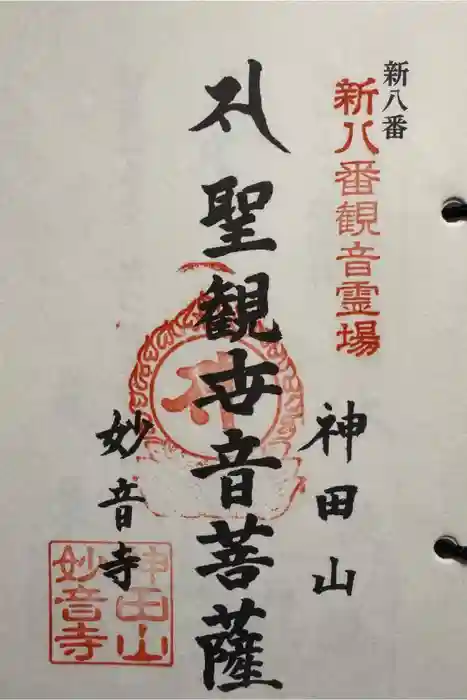 新八番
新八番観音霊場
札
聖観世音菩薩
神田山
妙音寺
神田山
妙音寺